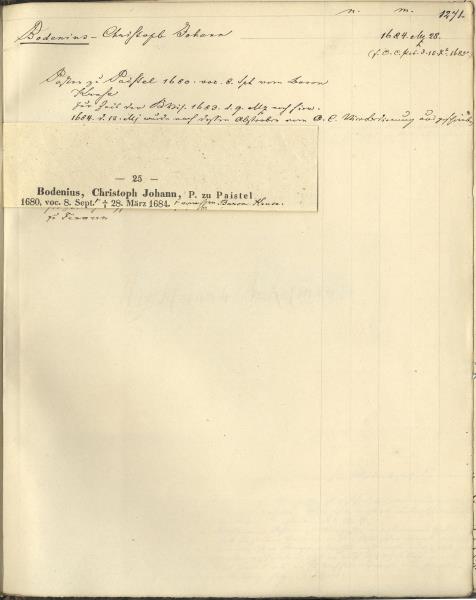 n. m. 1271.
Bodenius - Christoph Johann 1684. Mz 28.
Pastor zu Paistel 1680. voc. 8. Spt vom Baron
Kruse
zur Zeit der 1683. d. 9 Mz noch hier.
1684. d. 10. Mz wurde nach dessen Absterben vom O. C.
— 25 —
Bodenius, Christoph Johann, P. zu Paistel
1680, voc. 8. Sept. † 28. März 1684. Baron Kruse.
zu